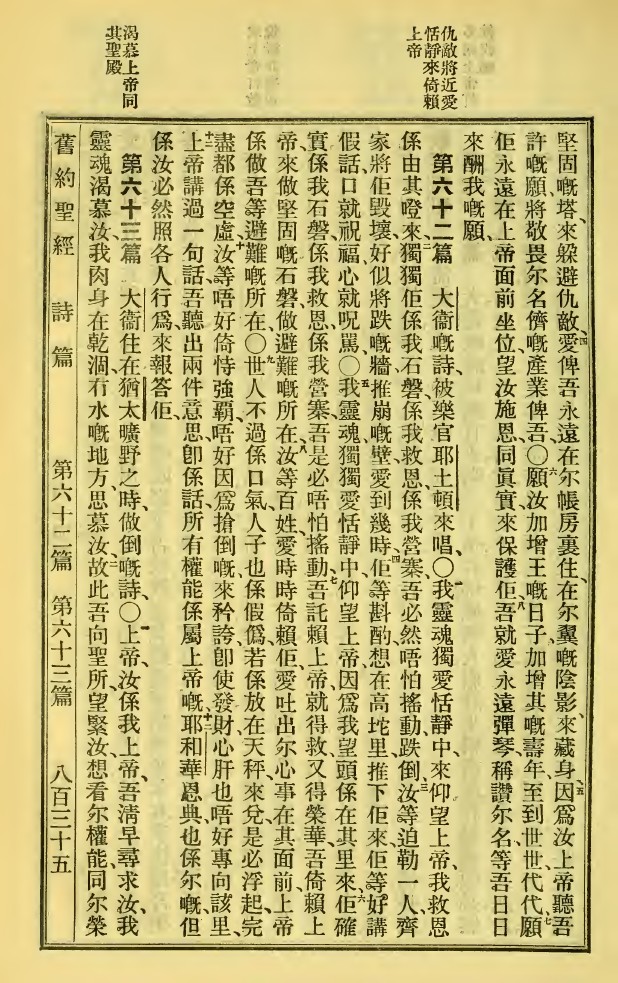 仇敵將近愛
恬靜來倚賴
上帝
渴慕上帝同
其聖殿
堅固嘅塔、來躲避仇敵、四愛俾吾永遠在尔帳房裏住、在尔翼嘅陰影、來藏身、五因爲汝上帝聽吾
許嘅願、將敬畏尔名儕嘅產業俾吾、〇六願汝加增王嘅日子、加增其嘅壽年、至到世世代代、七願
佢永遠在上帝面前坐位、望汝施恩同眞實、來保護佢、八吾就愛永遠彈琴稱讚尔名、等吾日日
來酬我嘅願、
第六十二篇 大衞嘅詩、被樂官耶土頓來唱、〇一我靈魂獨愛恬靜中、來仰望上帝、我救恩
係由其噔來、二獨獨佢係我石磐、係我救恩、係我營寨、吾必然唔怕搖動跌倒、三汝等迫勒一人、齊
家將佢毀壞、好似將跌嘅牆、推崩嘅壁、愛到幾時、四佢等斟酌、想在高坨里推下佢來、佢等好講
假話、口就祝福、心就呪罵、〇五我靈魂獨獨愛恬靜中仰望上帝、因爲我望頭係在其里來、六佢確
實係我石磐、係我救恩、係我營寨、吾是必唔怕搖動、七吾託賴上帝、就得救、又得榮華、吾倚賴上
帝、來做堅固嘅石磐、做避難嘅所在、八汝等百姓、愛時時倚賴佢、愛吐出尔心事在其面前、上帝
係做吾等避難嘅所在、〇九世人不過係口氣、人子也係假僞、若係放在天秤來兌、是必浮起、完
盡都係空虛、十汝等唔好倚恃強覇、唔好因爲搶倒嘅來矜誇、卽使發財、心肝也唔好專向該里、
十一上帝講過一句話、吾聽出兩件意思、卽係話、所有權能、係屬上帝嘅、十二耶和華恩典也係尔嘅、但
係汝必然照各人行爲、來報答佢、
第六十三篇 大衞住在猶太曠野之時、做倒嘅詩、〇一上帝、汝係我上帝、吾淸早尋求汝、我
靈魂渴慕汝、我肉身在乾涸冇水嘅地方、思慕汝、二故此吾向聖所望緊汝、想看尔權能、同尔榮
舊約聖經 詩篇 第六十二篇 第六十三篇 八百三十五